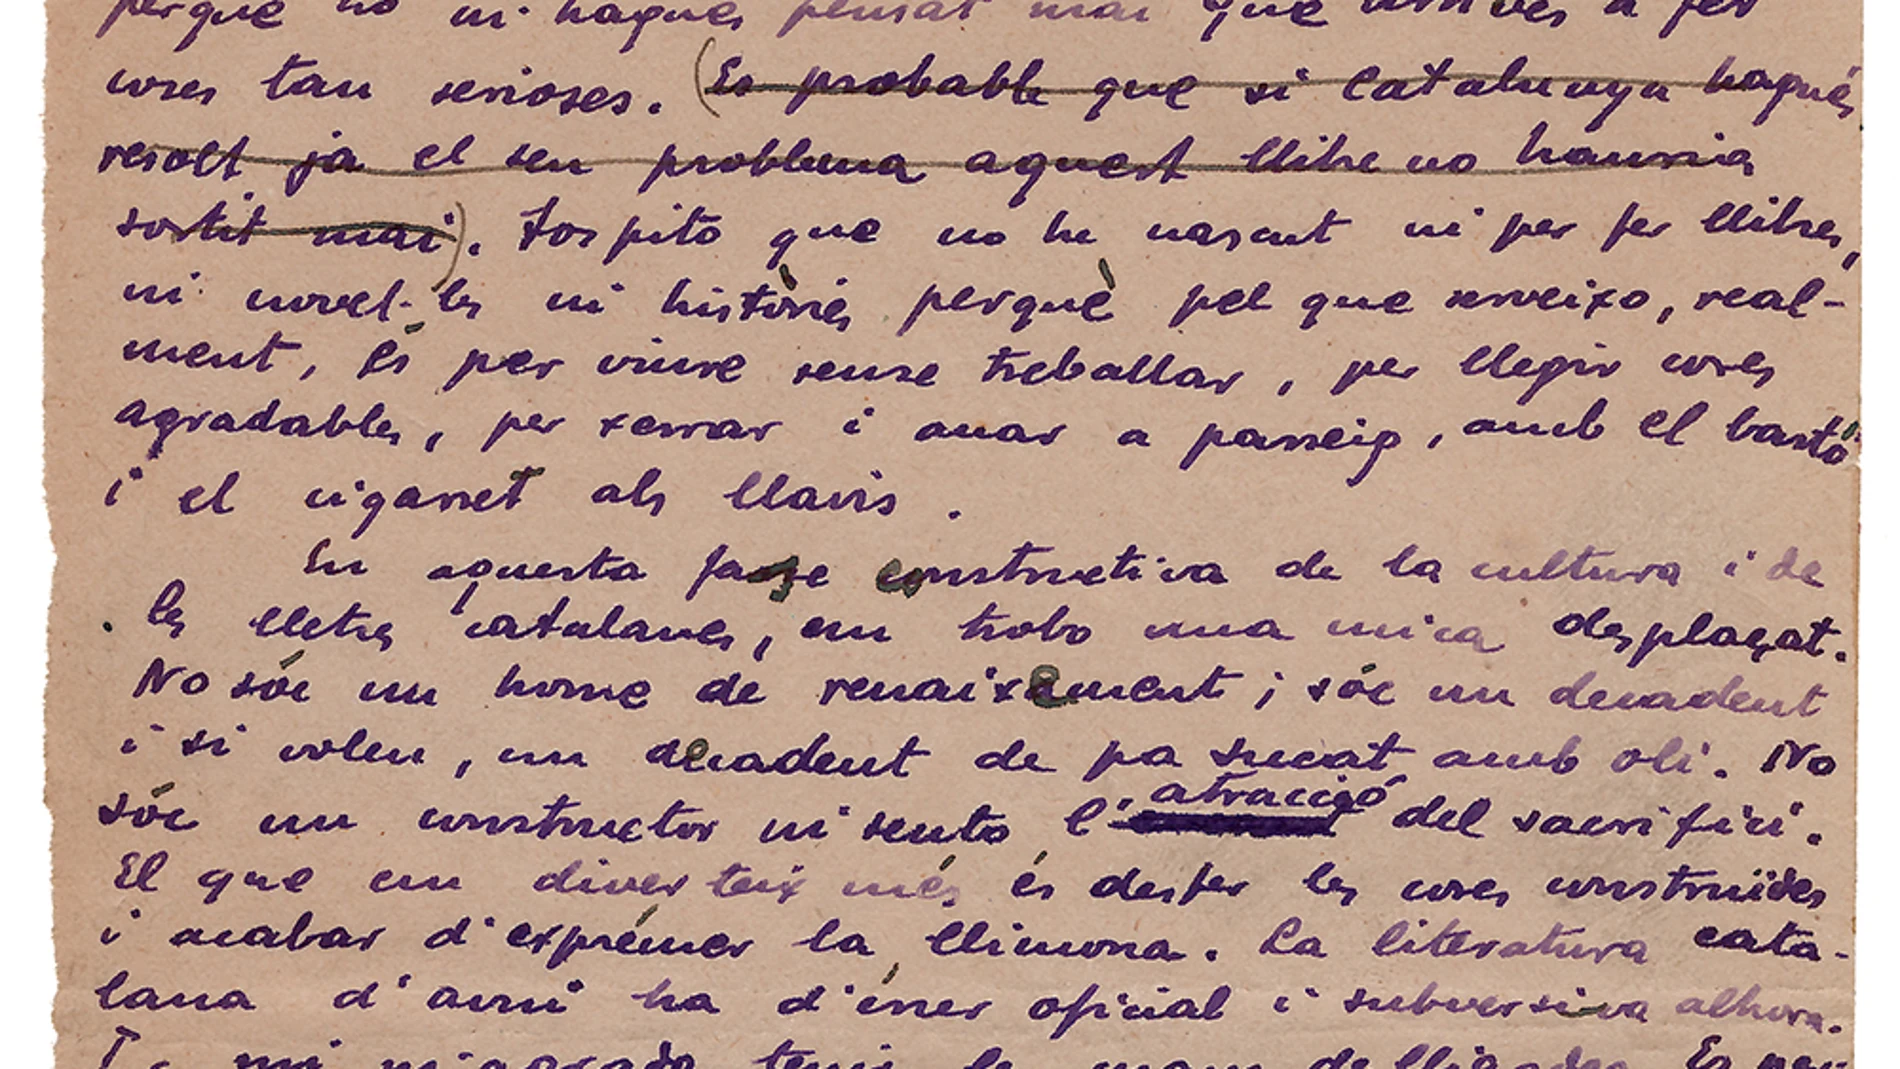 perquè no m'hagués pensat mai que arribés a fer
coses tan serioses. (Es probable que si Catalunya hagués
resolt ja el seu problema aquest llibre no hauria
sortit mai). Sospito que no he nascut ni per fer llibres,
ni novel·les ni històries perquè pel que serveixo, real-
ment, és per viure sense treballar, per llegir coses
agradables, per xerrar i anar a passeig, amb el bastó
i el cigarret als llavis.
En aquesta fase constructiva de la cultura i de
les lletres catalanes, em trobo una mica desplaçat.
No sóc un home de renaixement; sóc un decadent
i si voleu, un decadent de pa sucat amb oli. No
sóc un constructor ni sento l'atracció del sacrifici.
El que em diverteix més, és desfer les coses construïdes
i acabar d'exprémer la llimona. La literatura cata-
lana d'avui ha d'ésser oficial i subversiva alhora.
mi m'agrada tenir les mans deslligades.